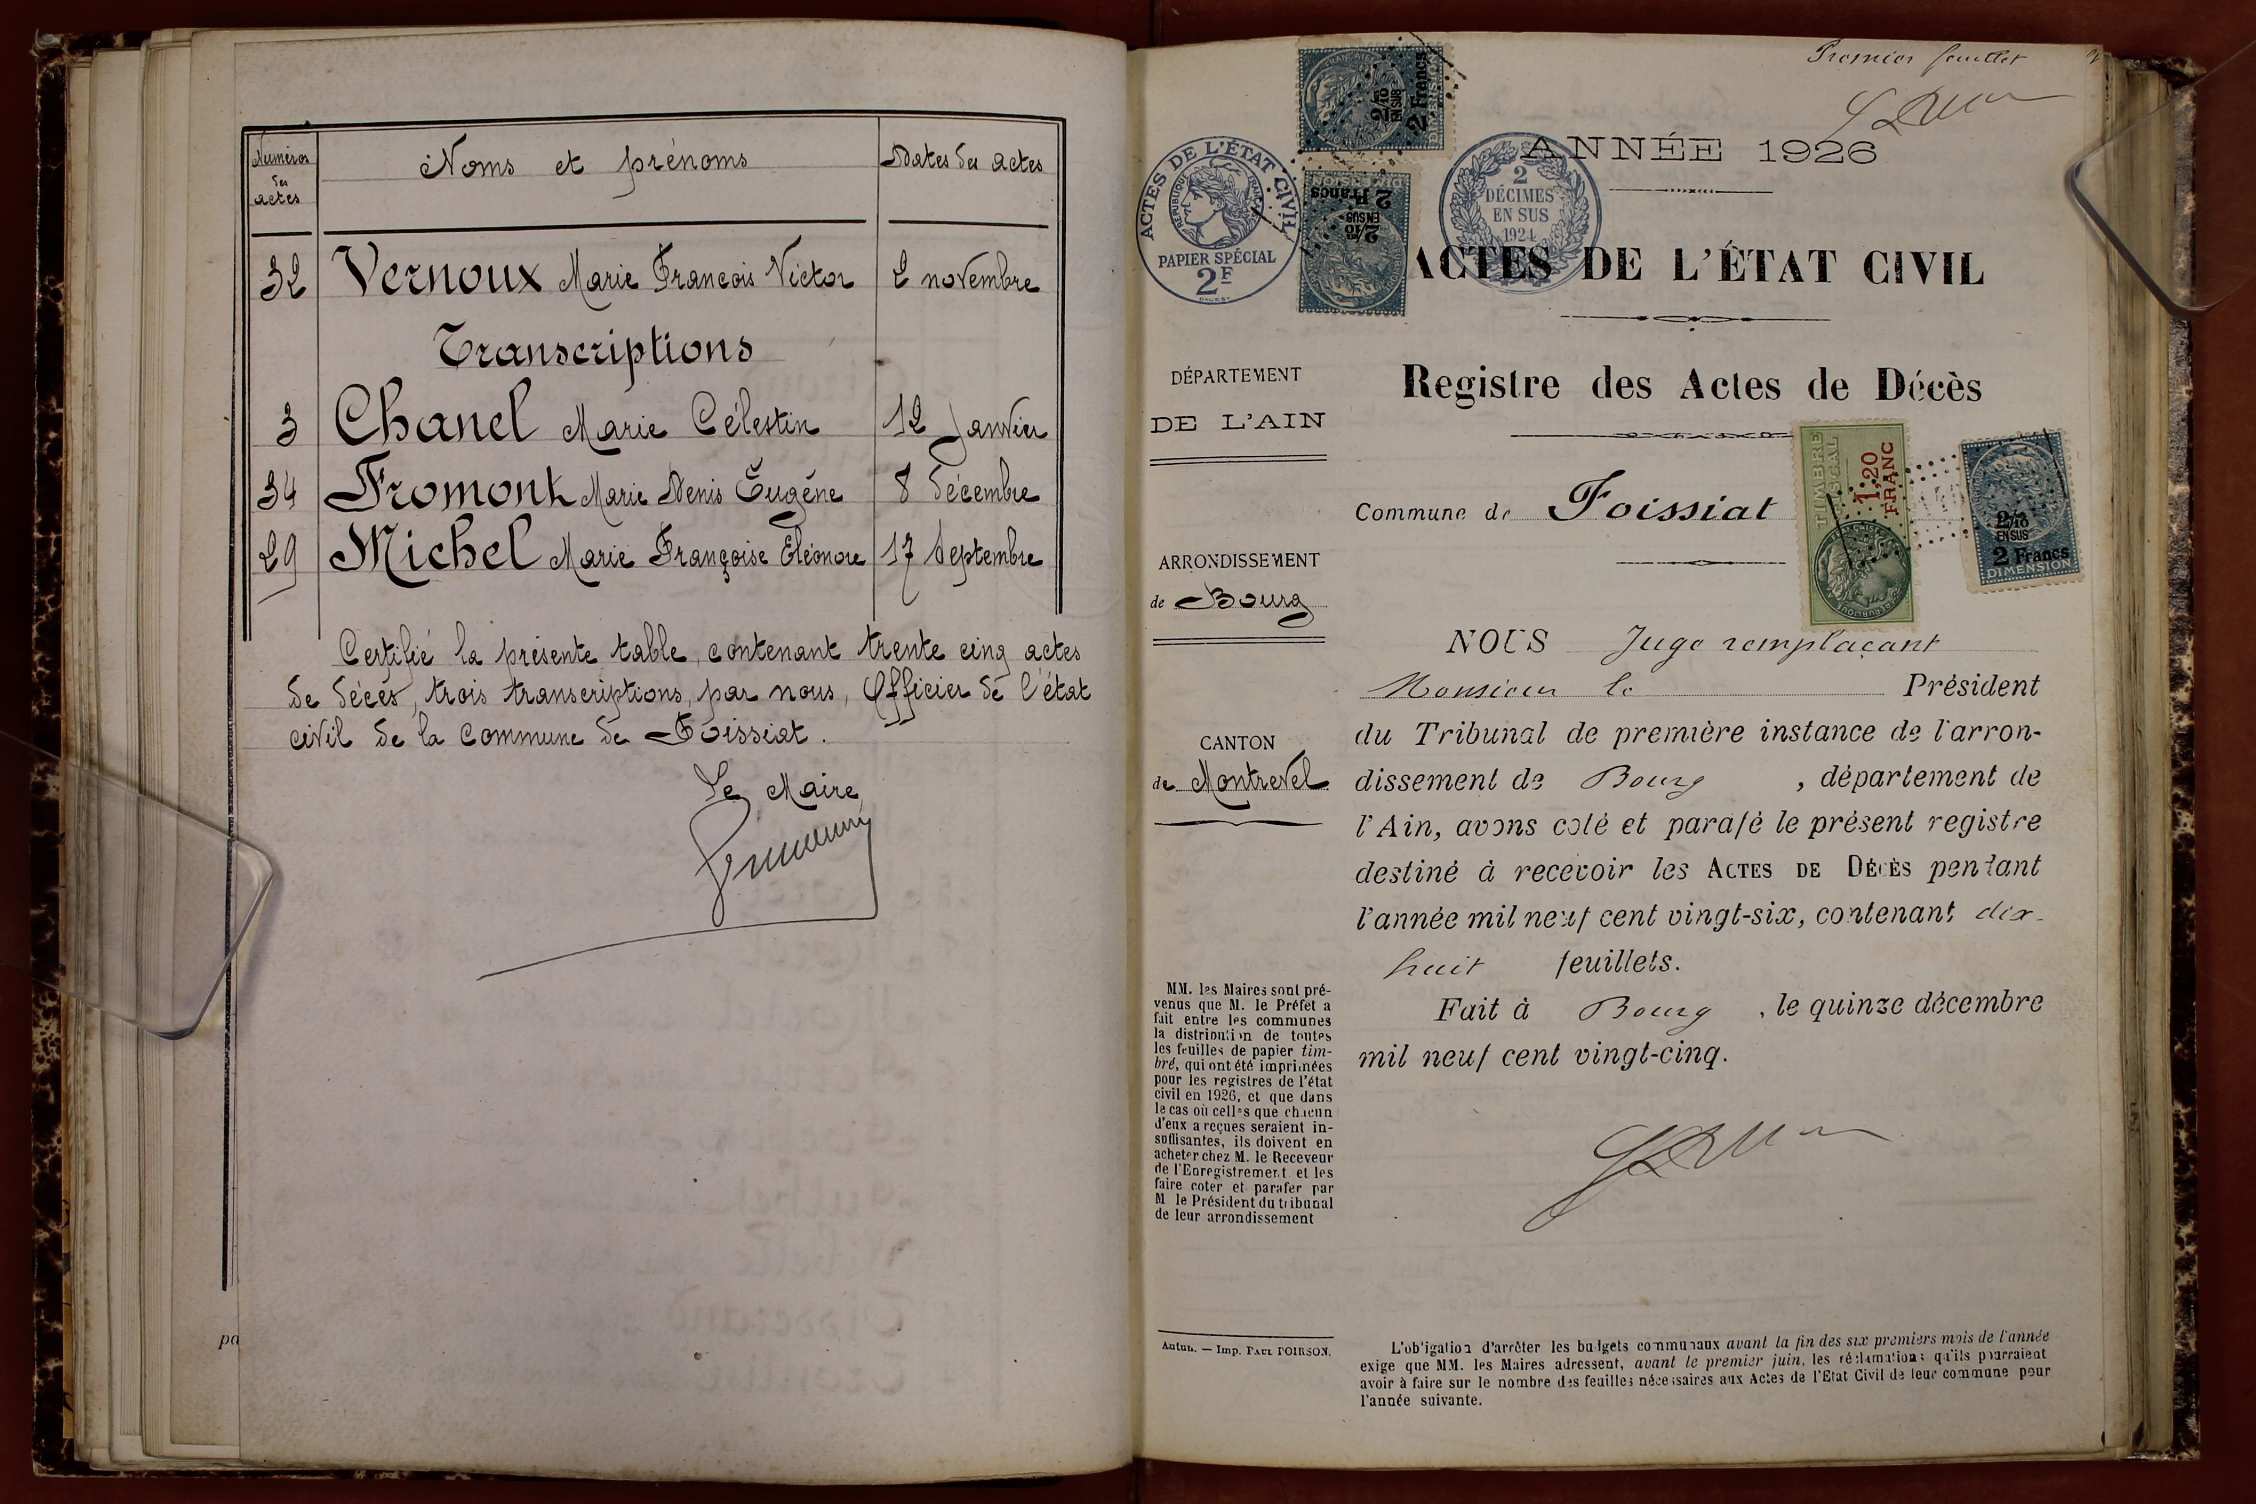 Numéros
des
actes
Noms et prénoms
Dates des actes
32 Vernoux Marie François Victor 2 novembre
Transcriptions
3 Chanel Marie Célestin 12 Janvier
34 Fromont Marie Denis Eugène 8 décembre
29 Michel Marie Françoise Eléonore 17 Septembre
Certifié la présente table, contenant trente cinq actes
de décès, trois transcriptions, par nous, Officier de l'état
civil de la commune de Foissiat.
Le Maire
pa
Premier feuillet
ANNÉE 1926
ACTES DE L'ÉTAT CIVIL
RÉPUBLIQUE FRANÇAISE
PAPIER SPÉCIAL
2F
2/10
EN SUS
2 Francs
DIMENSION
2/10
EN SUS
2 Francs
2
DÉCIMES
EN SUS
1924
ACTES DE L'ÉTAT CIVIL
Registre des Actes de Décès
DÉPARTEMENT
DE L'AIN
ARRONDISSEMENT
de Bourg
CANTON
de Montrevel
Commune de Foissiat
TIMBRE
FISCAL
1,20
FRANC
2/10
EN SUS
2 Francs
DIMENSION
NOUS Juge remplaçant
Monsieur le Président
du Tribunal de première instance de l'arron-
dissement de Bourg, département de
l'Ain, avons coté et parafé le présent registre
destiné à recevoir les ACTES DE DÉCÈS pendant
l'année mil neuf cent vingt-six, contenant dix-
huit feuillets.
Fait à Bourg, le quinze décembre
mil neuf cent vingt-cinq.
MM. les Maires sont pré-
venus que M. le Préfet a
fait entre les communes
la distribution de toutes
les feuilles de papier tim-
bré, qui ont été imprimées
pour les registres de l'état
civil en 1926, et que dans
le cas où celles que chacun
d'eux a reçues seraient in-
suffisantes, ils doivent en
acheter chez M. le Receveur
de l'Enregistrement et les
faire coter et parafer par
M le Président du tribunal
de leur arrondissement
Autun. — Imp. PAUL POIRSON.
L'obligation d'arrêter les budgets communaux avant la fin des six premiers mois de l'année
exige que MM. les Maires adressent, avant le premier juin, les réclamations qu'ils pourraient
avoir à faire sur le nombre des feuilles nécessaires aux Actes de l'Etat Civil de leur commune pour
l'année suivante.